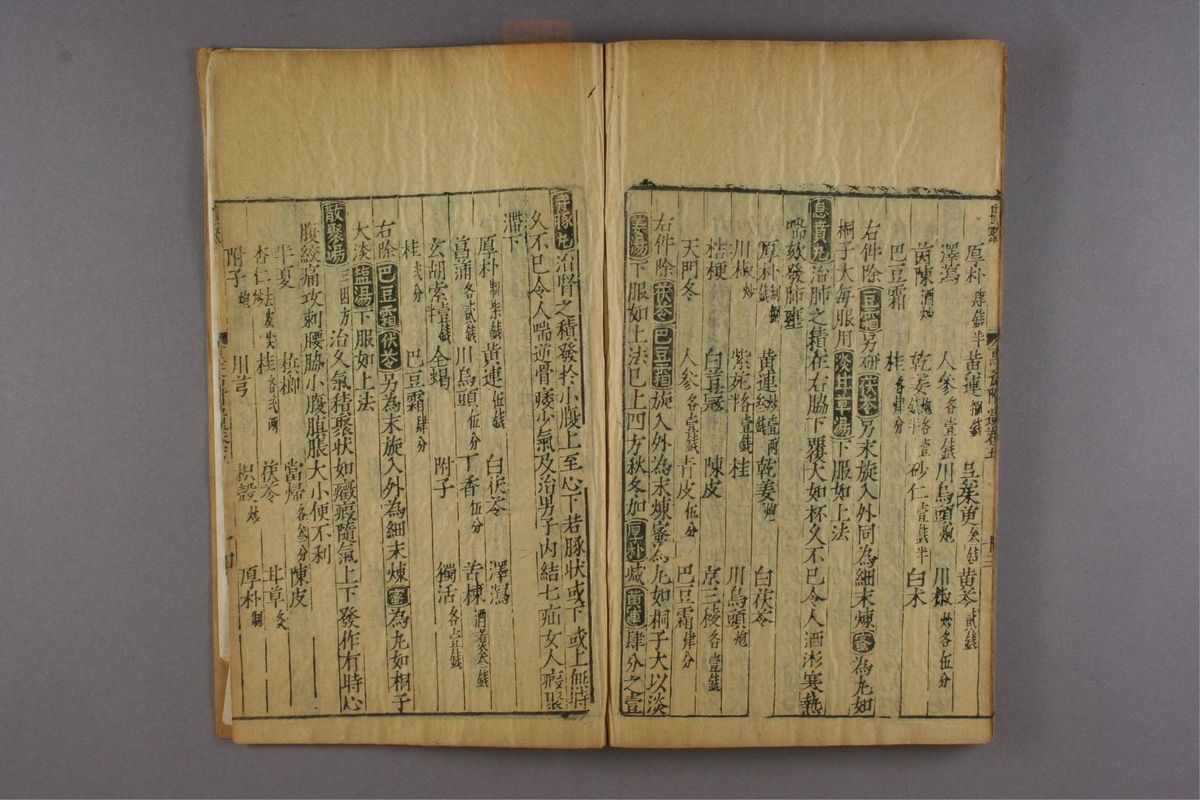 厚朴肆錢半 黃連捌錢 吳茱萸叁錢 黃芩貳錢
澤瀉 人參各壹錢 川烏頭炮 川椒炒各伍分
茵陳酒炒 乾姜炮各壹錢半 砂仁壹錢半 白朮
巴豆霜 桂各肆分
右件除豆霜另研茯苓另末旋入外同為細末煉蜜為丸如
桐子大每服用淡甘草湯下服如上法
息賁丸治肺之積在右脇下覆大如杯久不已令人洒淅寒熱
喘欬發肺壅
厚朴制捌錢 黃連炒壹兩叁錢 乾姜炮 白茯苓
川椒炒 紫菀各壹錢半 桂 川烏頭炮
桔梗 白荳蔻 陳皮 京三稜各壹錢
天門冬 人參各壹錢 青皮伍分 巴豆霜肆分
右件除茯苓巴豆霜旋入外為末煉蜜為丸如桐子大以淡
姜湯下服如上法已上四方秋冬加厚朴減黃連肆分之壹
奔豚丸治腎之積發於小腹上至心下若豚狀或下或上無時
久不已令人喘逆骨痿少氣及治男子內結七疝女人瘕聚
滯下
厚朴制柒錢 黃連伍錢 白茯苓 澤瀉
菖蒲各貳錢 川烏頭伍分 丁香伍分 苦楝酒煮叁錢
玄胡索錢半 全蝎 附子 獨活各壹錢
桂貳分 巴豆霜肆分
右除巴豆霜茯苓另為末旋入外為細末煉蜜為丸如桐子
大淡鹽湯下服如上法
散聚湯三四方治久氣積聚狀如癥瘕隨氣上下發作有時心
腹絞痛攻刺腰脇小腹䐜脹大小便不利
半夏 檳榔 當歸各叁分 陳皮
杏仁炒去皮尖 桂各貳兩 茯苓 甘草炙
附子炮 川芎 枳殼炒 厚朴制